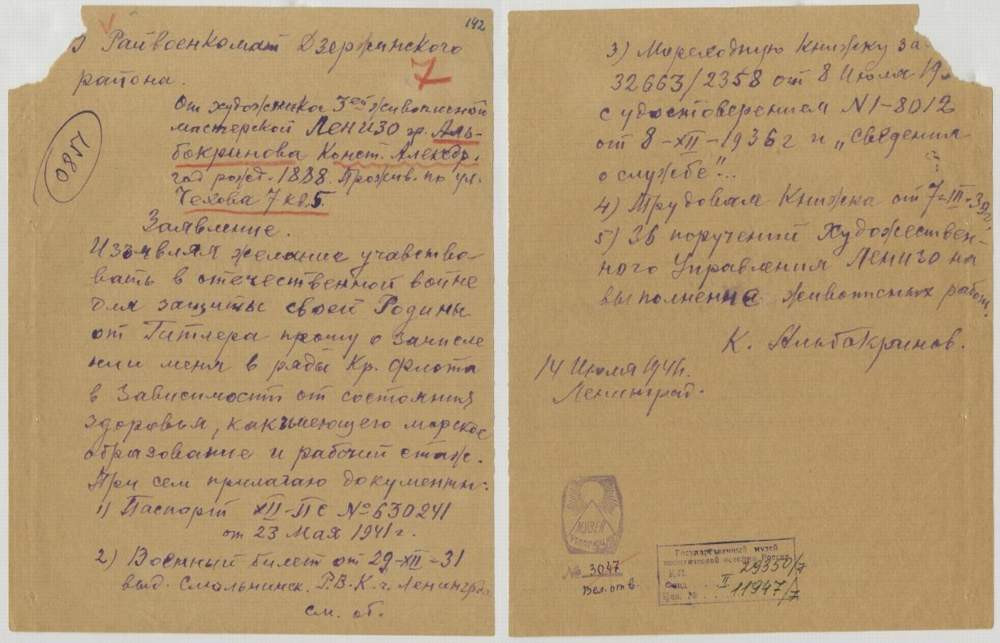 142
В Райвоенкомат Дзержинского
района.
7
От художника 3ей живописной
мастерской Ленизо гр. Аль-
бакринова Конст. Алексдр.
год рожд. 1888. Прожив. по ул.
Чехова 7 кв. 5.
0857
Заявление.
Изъявляя желание учавство-
вать в отечественной войне
для защиты своей Родины
от Гитлера прошу о зачисле
нии меня в ряды Кр. Флота
в зависимости от состояния
здоровья, как имеющего морское
образование и рабочий стаж.
При сем прилагаю документы:
1) Паспорт XII-ПС № 630241
от 23 Мая 1941 г.
2) Военный билет от 29-XII-31
выд. Смольнинск. Р.В.К. г. Ленинград.
см. об.
3) Мореходную Книжку за
32663/2358 от 8 Июля 19
с удостоверением N 1-8012
от 8-XII-1936 г и „Сведения
о службе"...
4) Трудовая Книжка от 7-III-39 г.
5) 36 поручений Художествен-
ного Управления Ленизо на
выполнение живописных работ.
К. Альбакринов.
14 Июля 1941 г.
Ленинград.
МУЗЕЙ
№ 3047
Вел. от. в.
Государственный музей
политической истории России
К.П. 29350/7
Фонд II
Инв. № 11947/7